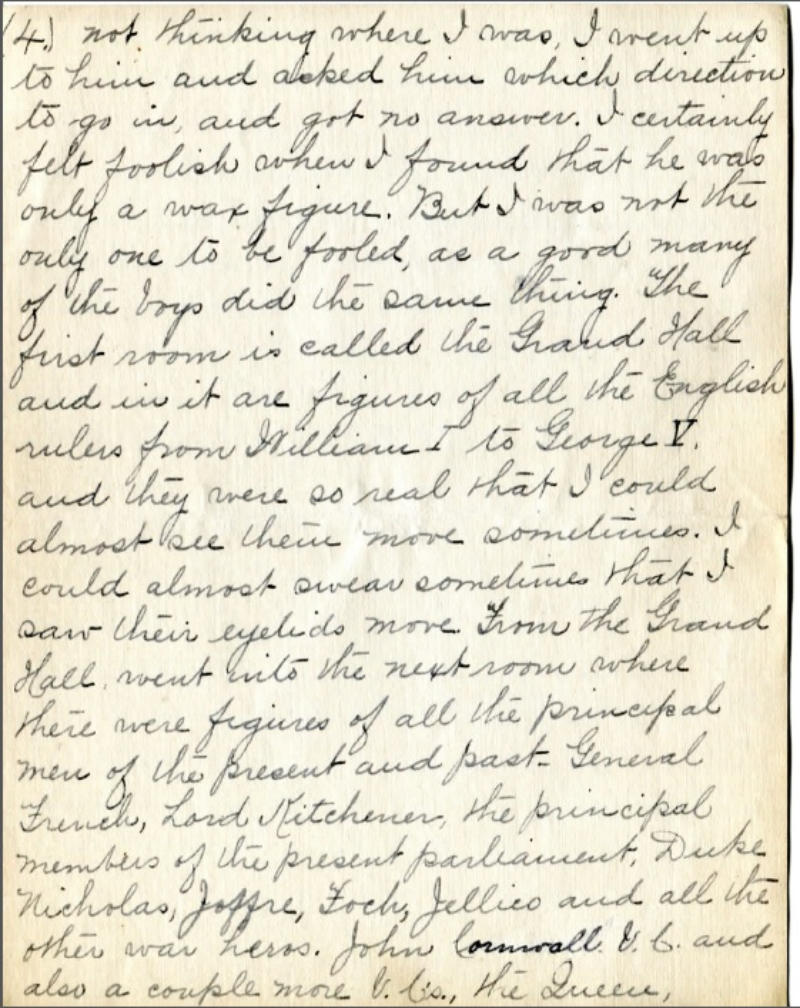 (4.) not thinking where I was, I went up
to him and asked him which direction
to go in, and got no answer. I certainly
felt foolish when I found that he was
only a wax figure. But I was not the
only one to be fooled, as a good many
of the boys did the same thing. The
first room is called the Grand Hall
and in it are figures of all the English
rulers from William I to George V.
and they were so real that I could
almost see them move sometimes. I
could almost swear sometimes that I
saw their eyelids move. From the Grand
Hall, went into the next room where
there were figures of all the principal
men of the present and past - General
French, Lord Kitchener, the principal
members of the present parliament, Duke
Nicholas, Joffre, Foch, Jellico and all the
other war heros. John Cornwall V.C. and
also a couple more V.C's., the Queen,